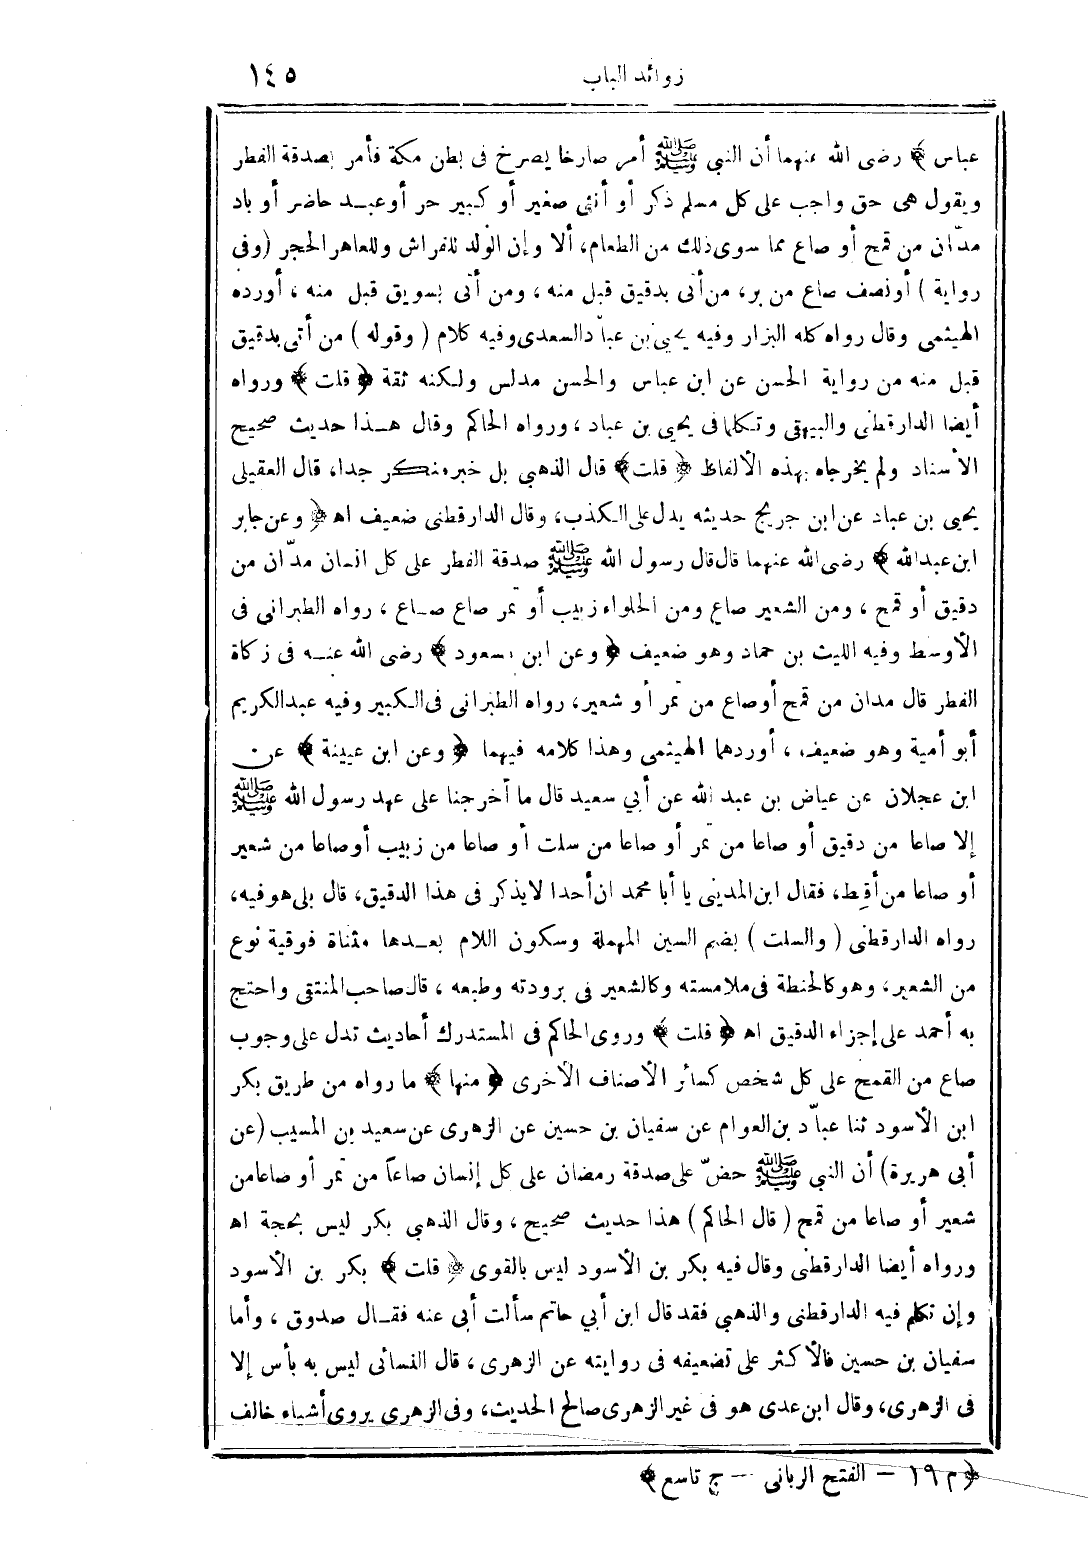 زوائد الباب ١٤٥
عباس﴾ رضى الله عنهما أن النبى ﷺ أمر صارخا يصرخ فى بطن مكة فأمر بصدقة الفطر
ويقول هى حق واجب على كل مسلم ذكر أو أنثى صغير أو كبير حر أو عبد حاضر أو باد
مدّان من قمح أو صاع مما سوى ذلك من الطعام، ألا وإن الولد للفراش وللعاهر الحجر (وفى
رواية) أو نصف صاع من بر، من أتى بدقيق قبل منه، ومن أتى بسويق قبل منه، أورده
الهيثمى وقال رواه كله البزار وفيه يحيى بن عبّاد السعدى وفيه كلام (وقوله) من أتى بدقيق
قبل منه من رواية الحسن عن ابن عباس والحسن مدلس ولكنه ثقة ﴿قلت﴾ ورواه
أيضا الدارقطنى والبيهقى وتكلما فى يحيى بن عباد، ورواه الحاكم وقال هذا حديث صحيح
الأسناد ولم يخرجاه بهذه الألفاظ ﴿قلت﴾ قال الذهبى بل خبر منكر جدا، قال العقيلى
يحيى بن عباد عن ابن جريج حديثه يدل على الكذب، وقال الدارقطنى ضعيف اه ﴿وعن جابر
ابن عبد الله﴾ رضى الله عنهما قال قال رسول الله ﷺ صدقة الفطر على كل انسان مدّان من
دقيق أو قمح، ومن الشعير صاع ومن الحلواء زبيب أو تمر صاع صاع، رواه الطبرانى فى
الأوسط وفيه الليث بن حماد وهو ضعيف ﴿وعن ابن مسعود﴾ رضى الله عنه فى زكاة
الفطر قال مدان من قمح أو صاع من تمر أو شعير، رواه الطبرانى فى الكبير وفيه عبد الكريم
أبو أمية وهو ضعيف، أوردهما الهيثمى وهذا كلامه فيهما ﴿وعن ابن عيينة﴾ عن
ابن عجلان عن عياض بن عبد الله عن أبي سعيد قال ما أخرجنا على عهد رسول الله ﷺ
إلا صاعا من دقيق أو صاعا من تمر أو صاعا من سلت أو صاعا من زبيب أو صاعا من شعير
أو صاعا من أقط، فقال ابن المدينى يا أبا محمد ان أحدا لا يذكر فى هذا الدقيق، قال بلى هو فيه،
رواه الدارقطنى (والسلت) بضم السين المهملة وسكون اللام بعدها مثناة فوقية نوع
من الشعير، وهو كالحنطة فى ملامسته وكالشعير فى برودته وطبعه، قال صاحب المنتقى واحتج
به أحمد على إجزاء الدقيق اه ﴿قلت﴾ وروى الحاكم فى المستدرك أحاديث تدل على وجوب
صاع من القمح على كل شخص كسائر الأصناف الأخرى ﴿منها﴾ ما رواه من طريق بكر
ابن الأسود ثنا عبّاد بن العوام عن سفيان بن حسين عن الزهرى عن سعيد بن المسيب (عن
أبى هريرة) أن النبى ﷺ حضّ على صدقة رمضان على كل إنسان صاعاً من تمر أو صاعا من
شعير أو صاعا من قمح (قال الحاكم) هذا حديث صحيح، وقال الذهبى بكر ليس بحجة اه
ورواه أيضا الدارقطنى وقال فيه بكر بن الأسود ليس بالقوى ﴿قلت﴾ بكر بن الأسود
وإن تكلم فيه الدارقطنى والذهبي فقد قال ابن أبي حاتم سألت أبى عنه فقال صدوق، وأما
سفيان بن حسين فالأكثر على تضعيفه فى روايته عن الزهرى، قال النسائى ليس به بأس إلا
فى الزهرى، وقال ابن عدى هو فى غير الزهرى صالح الحديث، وفى الزهرى يروى أشياء خالف
﴿م ١٩ - الفتح الربانى - ج تاسع﴾